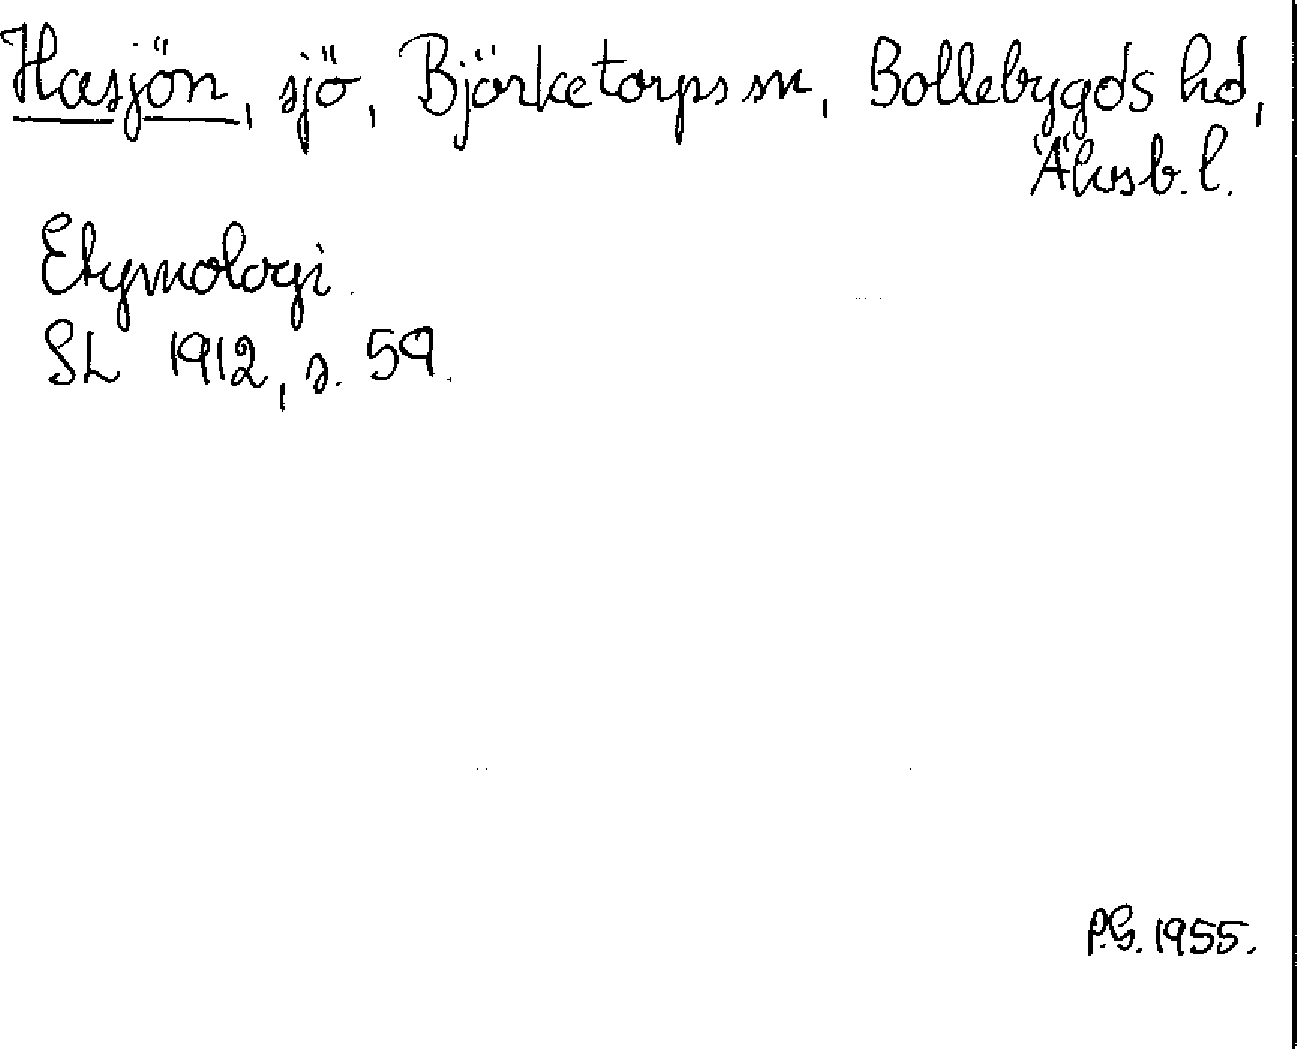 Hasjön, sjö, Björketorps sn, Bollebygds hd,
Älvsb. l.
Etymologi.
SL 1912, s. 59.
P.G. 1955.